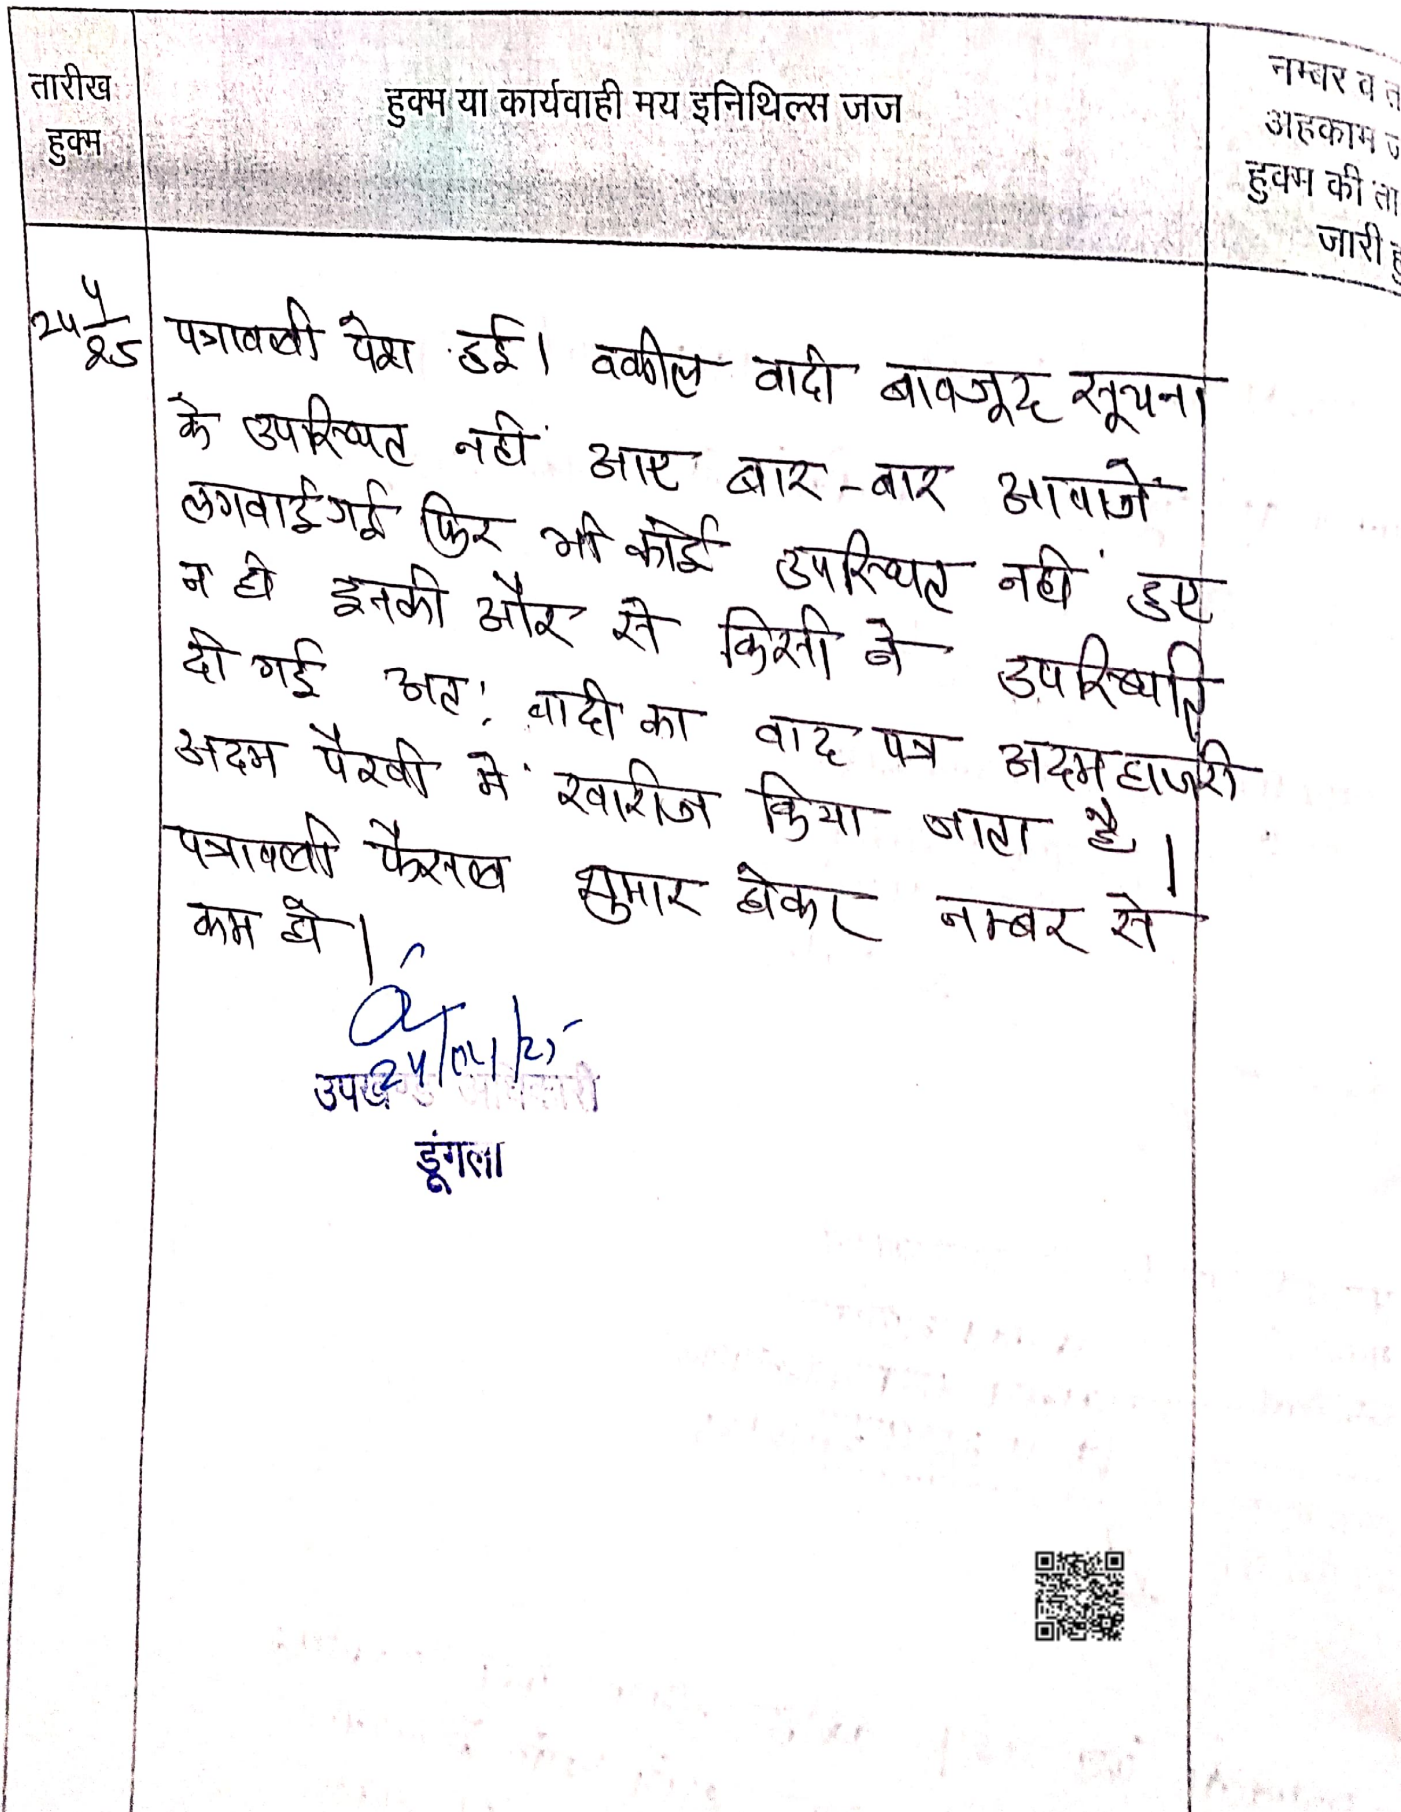 तारीख
हुक्म
हुक्म या कार्यवाही मय इनिथिल्स जज
नम्बर व त
अहकाम ज
हुक्म की ता
जारी हु
24 4/25
पत्रावली पेश हुई। वकील वादी बावजूद सूचना
के उपस्थित नहीं आए बार-बार आवाजें
लगवाई गई फिर भी कोई उपस्थित नहीं हुए
न ही इनकी और से किसी ने उपस्थिति
दी गई अतः वादी का वाद पत्र अदम हाजरी
अदम पैरवी में खारीज किया जाता है।
पत्रावली फैसल शुमार होकर नम्बर से
कम हो।
24/04/25
उपखण्ड अधिकारी
डूंगला